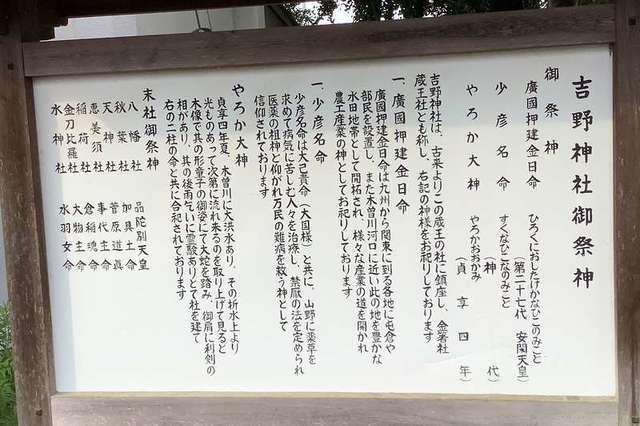 吉野神社御祭神
御祭神
廣國押建金日命 ひろくにおしたけかなひこのみこと
(第二十七代 安閑天皇)
少彦名命 すくなびこなのみこと
(神代)
やろか大神 やろかおおかみ
(貞享四年)
吉野神社は、古来よりこの蔵王の社に鎮座し、金箸社
蔵王社とも称し、右記の神様をお祀りしております
一、廣國押建金日命
廣國押建金日命は九州から関東に到る各地に屯倉や
部民を設置し、また木曽川河口に近い此の地を豊かな
水田地帯として開拓され、様々な産業の道を開かれ
農工産業の神としてお祀りしております
一、少彦名命
少彦名命は大己貴命(大国様)と共に、山野に薬草を
求めて病気に苦しむ人々を治療し、禁厭の法を定められ
医薬の祖神と仰がれ万民の難病を救う神として
信仰されております
やろか大神
貞享四年夏、木曽川に大洪水あり、その折水上より
光ものあって次第に流れ来るのを取り上げて見ると
木像で其の形童子の御姿にて大蛇を踏み、御肩に利剣の
相があり、其の後雨乞いに霊験ありとて社を建て
右の二柱の命と共に合祀されております
末社御祭神
八幡社 品陀別天皇
秋葉社 加具土命
天神社 菅原道真
恵美須社 事代主命
稲荷社 倉稲魂命
金刀比羅社 大物主命
水神社 水羽女命